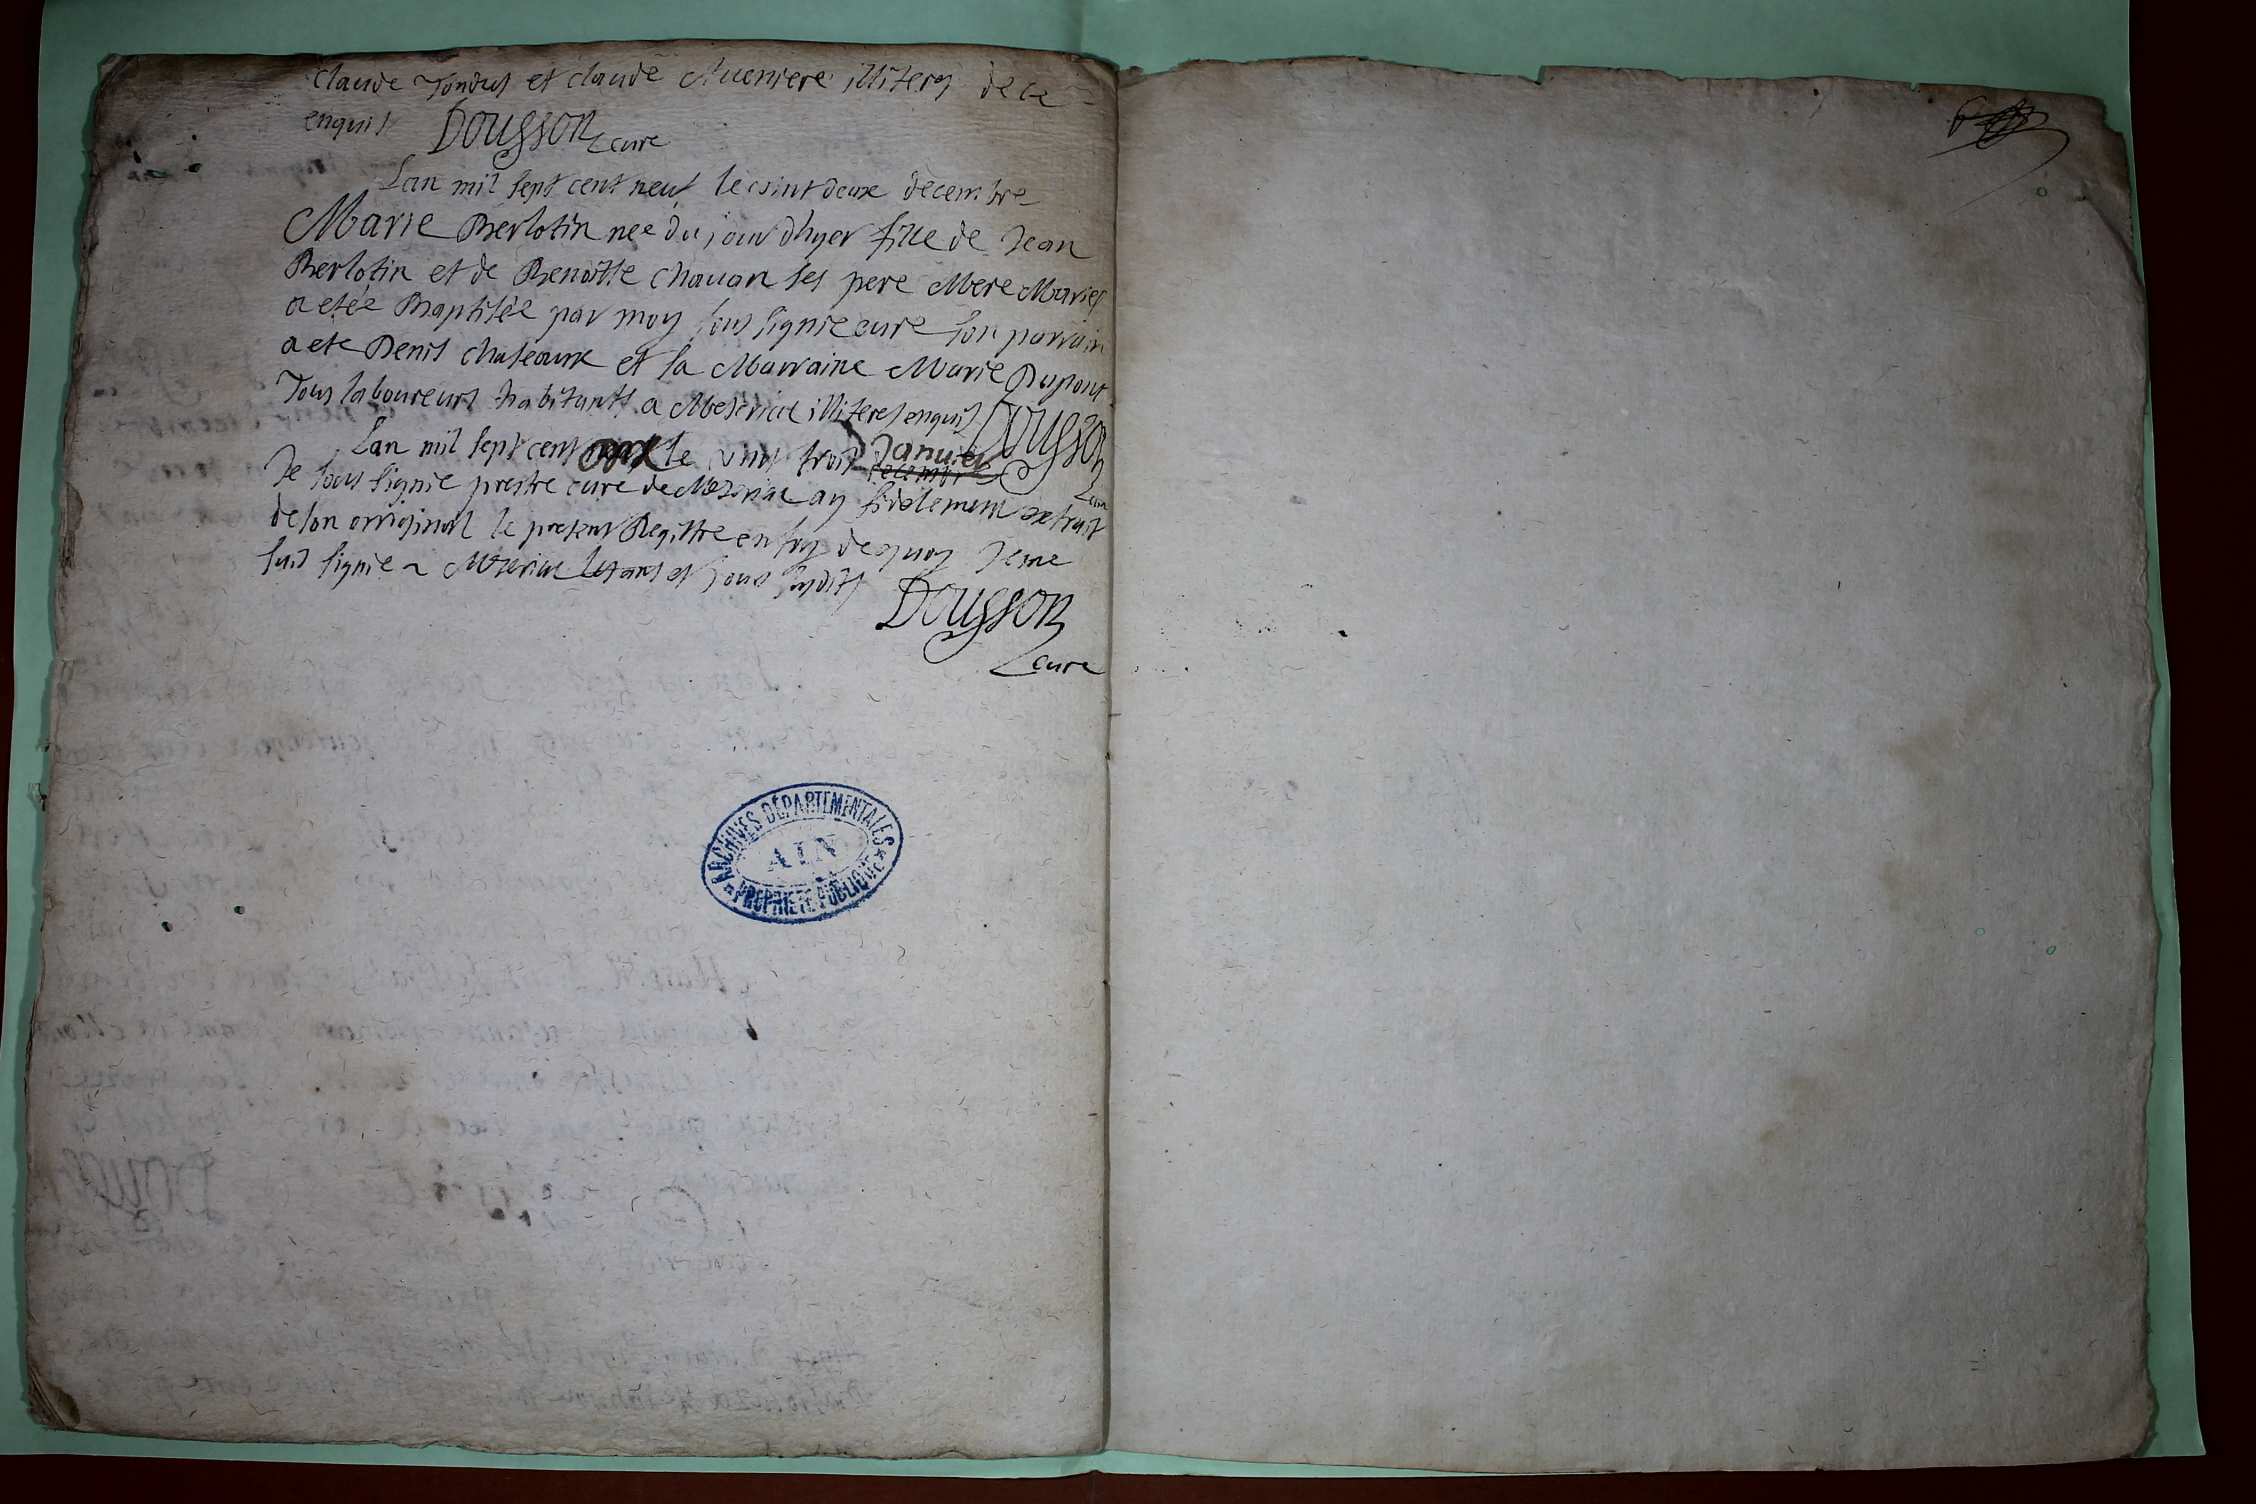 claude Tondus et claude Mueniere illiteres de ce
enquis Dousson cure
Lan mil sept cent neuf le vint deux decembre
Marie Berlotin nee du jour d'hyer fille de Jean
Berlotin et de Benoitte Chavan ses pere Mere Maries
a etée Baptisée par moy sous signie cure son parrain
a ete Denis chateaux et sa Marraine Marie Dupont
Tous laboureurs habitants a Meseriac illiteres enquis Dousson
cure
Lan mil sept cent onze le vint trois Januier decembre
Je sous signie prestre cure de Meseriac ay fidelement extrait
de son original le present Registre en foy de quoy Je me
suis signie a Meseriac les ans et jours susdits
Dousson
cure
ARCHIVES DÉPARTEMENTALES
AIN
PROPRIÉTÉ PUBLIQUE